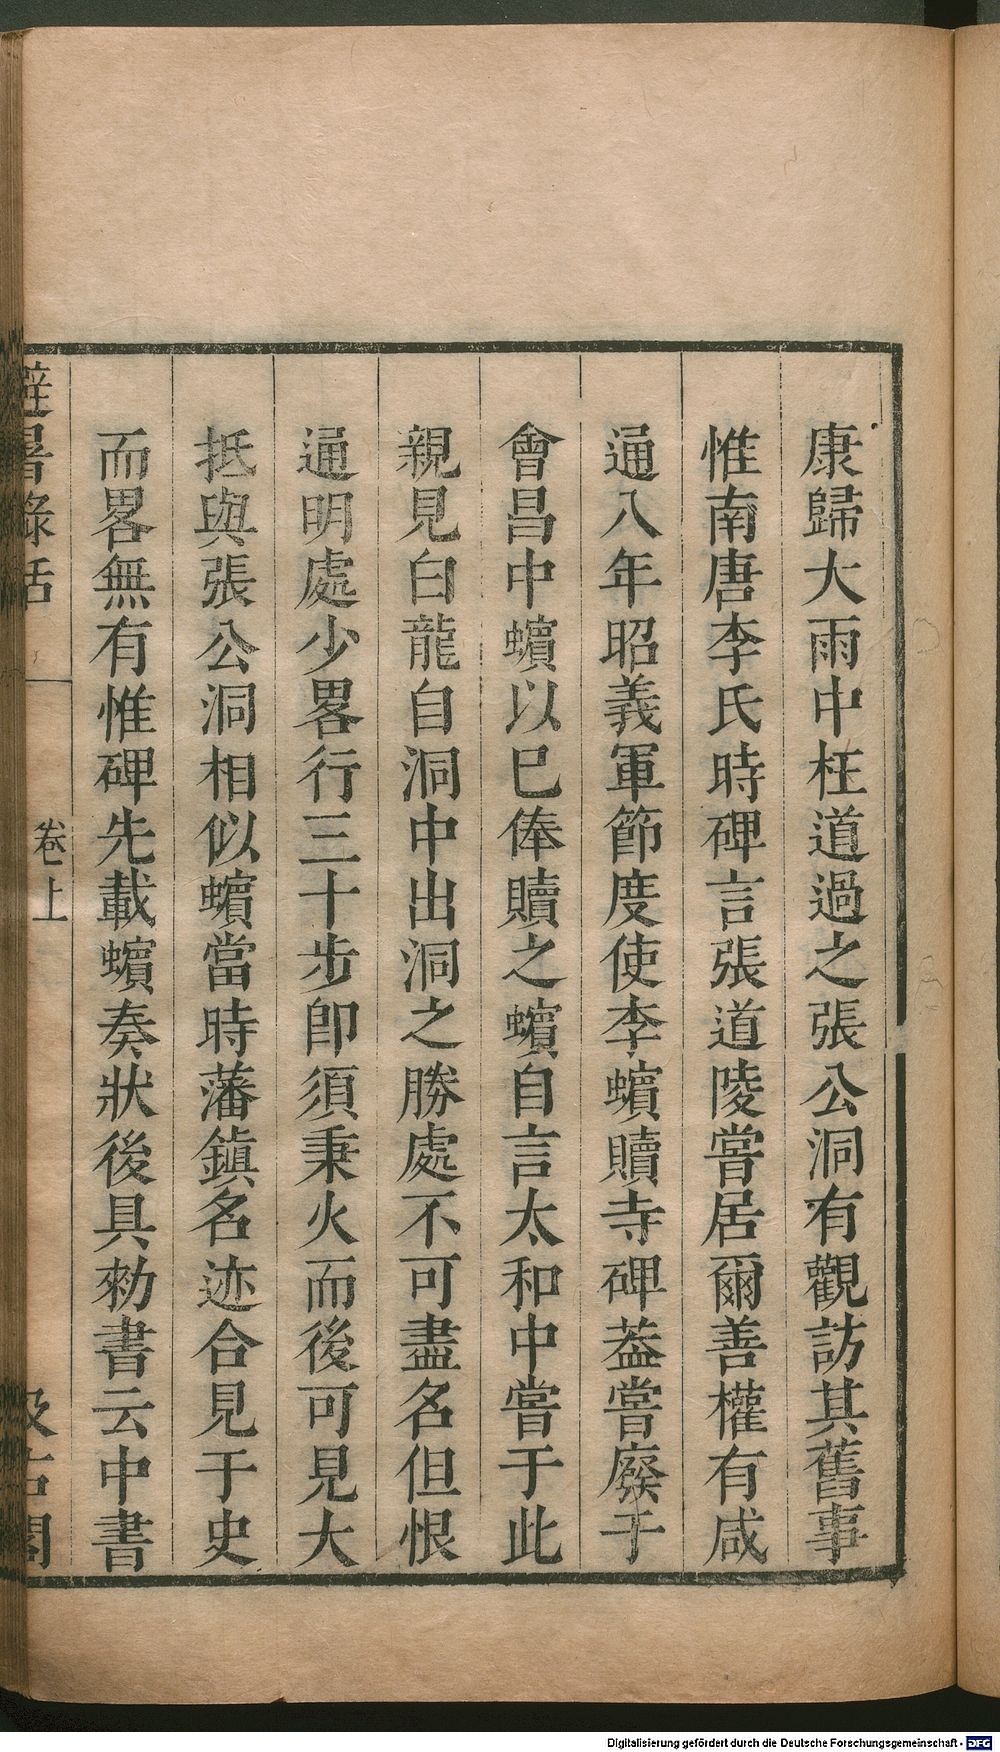 康歸大雨中枉道過之張公洞有觀訪其舊事
惟南唐李氏時碑言張道陵嘗居爾善權有咸
通八年昭義軍節度使李蠙贖寺碑葢嘗廢于
會昌中蠙以巳俸贖之蠙自言太和中嘗于此
親見白龍自洞中出洞之勝處不可盡名但恨
通明處少畧行三十步卽須秉火而後可見大
抵與張公洞相似蠙當時藩鎮名迹合見于史
而畧無有惟碑先載蠙奏狀後具勑書云中書
避暑錄話
卷上
汲古閣
Digitalisierung gefördert durch die Deutsche Forschungsgemeinschaft - DFG